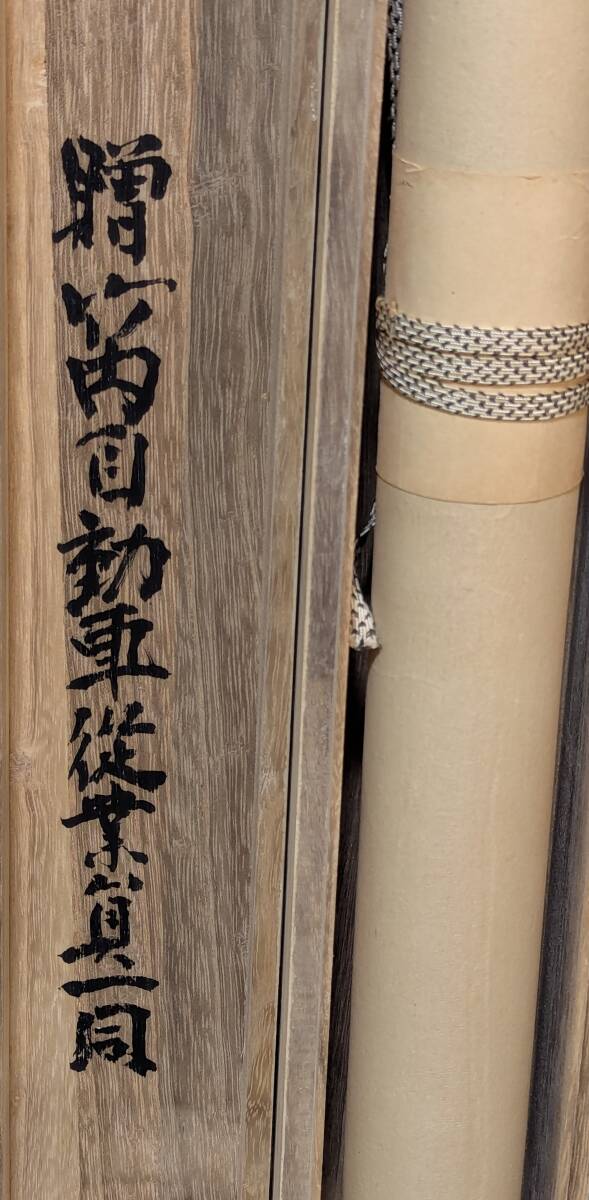 贈竹内自動車従業員一同